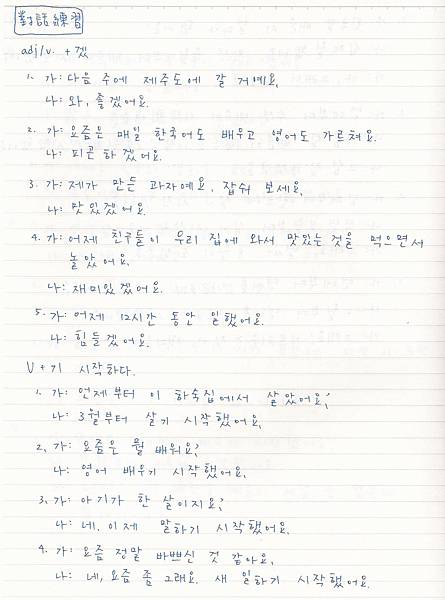 對話練習
adj/v. + 겠
1. 가: 다음 주에 제주도에 갈 거예요.
나: 와, 좋겠어요.
2. 가: 요즘은 매일 한국어도 배우고 영어도 가르쳐요.
나: 피곤 하겠어요.
3. 가: 제가 만든 과자예요. 잡숴 보세요.
나: 맛있겠어요.
4. 가: 어제 친구들이 우리 집에 와서 맛있는 것을 먹으면서
놀았어요.
나: 재미있겠어요.
5. 가: 어제 12시간 동안 일했어요.
나: 힘들겠어요.
V + 기 시작하다.
1. 가: 언제부터 이 하숙집에서 살았어요?
나: 3월부터 살기 시작했어요.
2. 가: 요즘은 뭘 배워요?
나: 영어 배우기 시작했어요.
3. 가: 아기가 한 살이지요?
나: 네. 이제 말하기 시작했어요.
4. 가: 요즘 정말 바쁘신 것 같아요.
나: 네, 요즘 좀 그래요. 새 일하기 시작했어요.